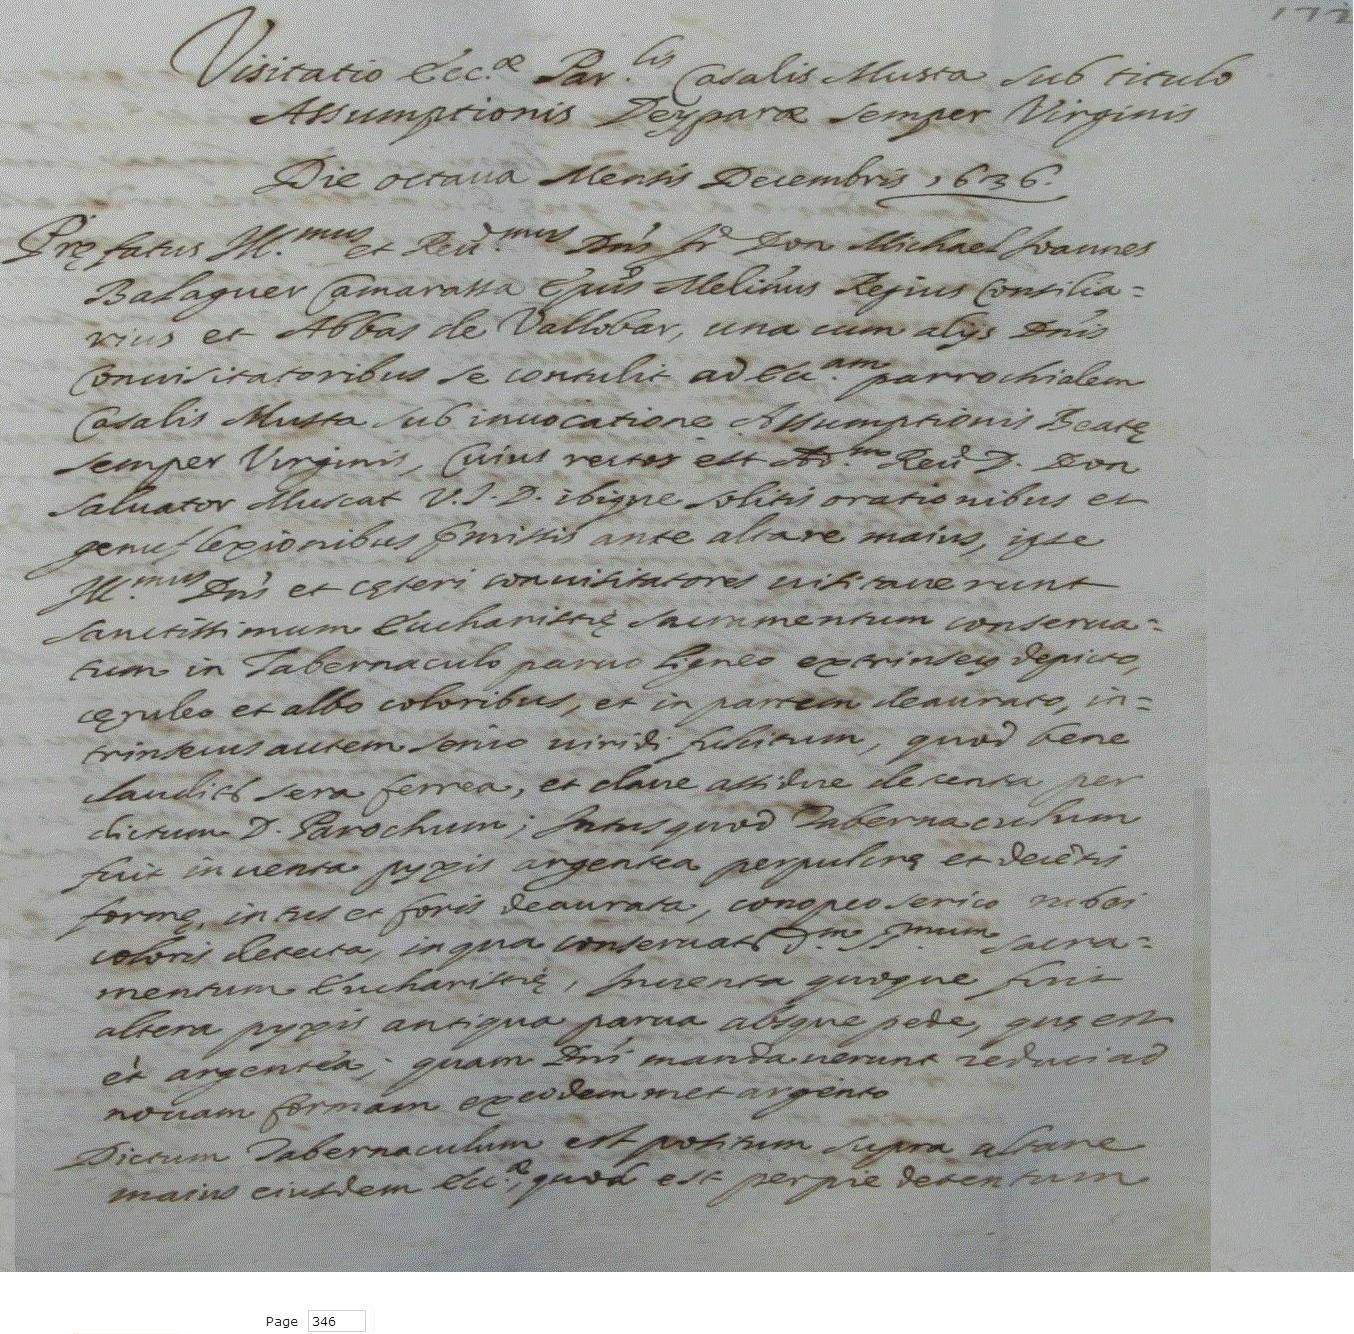 172
Visitatio Ecc.æ Par.lis Casalis Musta sub titulo
Assumptionis Deyparæ semper Virginis
Die octaua Mensis Decembris 1636.
Pręfatus Ill.mus et Reu.mus Dn̄s fr̄ Don Michael Joannes
Balaguer Camarassa Ep̄us Meliten̄us Regius Consilia=
rius et Abbas de Vallobar, una cum alijs Dn̄is
Conuisitatoribus se contulit ad Ecc.am parrochialem
Casalis Musta sub inuocatione Assumptionis Beatę
semper Virginis, Cuius rector est Ad.m Reu̅ D. Don
Saluator Muscat V.I.D. ibique solitis orationibus et
genuflexionibus p̄missis ante altare maius, ipse
Ill.mus Dn̄s et cęteri conuisitatores uisitauerunt
sanctissimum Eucharistię sacramentum conserua=
tum in Tabernaculo paruo ligneo extrinsecus depicto,
cęruleo et albo coloribus, et in partem deaurato, in=
trinsecus autem serico uiridi fulcitum, quod bene
clauditr sera ferrea, et claue assidue detenta per
dictum D. Parochum; Intus quod Tabernaculum
fuit inuenta pyxis argentea perpulcrę et decētis
formę, intus et foris deaurata, conopeo serico rubei
coloris detecta, in qua conseruatr SS.mum sacra=
mentum Eucharistię, Inuenta quoque fuit
altera pyxis antiqua parua absque pede, quę est
et argentea; quam Dn̄i mandauerunt reduci ad
nouam formam ex eodemmet argento
Dictum Tabernaculum est positum supra altare
maius eiusdem Ecc.æ, quod est perpie detentum
Page 346